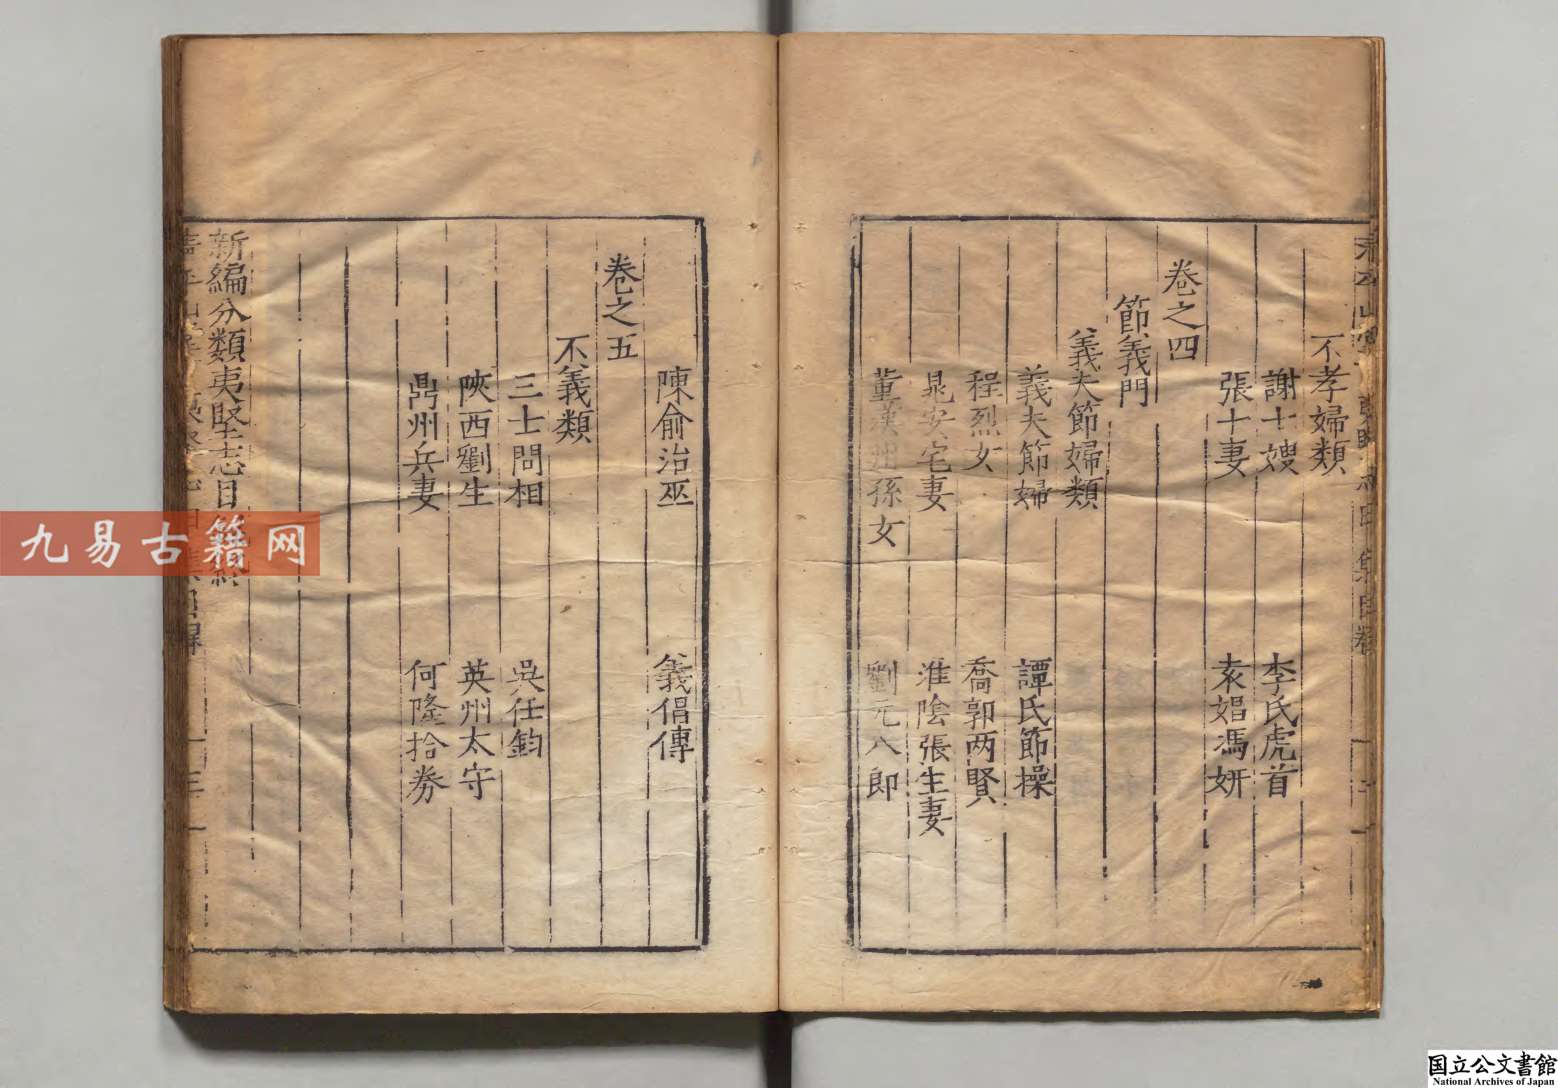 不孝婦類
謝七嫂 李氏虎首
張十妻 袁娼馮妍
卷之四
節義門
義夫節婦類
義夫節婦 譚氏節操
程烈女 喬郭两賢
晁安宅妻 淮陰張生妻
董漢州孫女 劉元八郎
陳俞治巫 義倡傳
卷之五
不義類
三士問相 吳任鈞
陝西劉生 英州太守
鼎州兵妻 何隆拾券
新編分類夷堅志目
九易古籍网
国立公文書館
National Archives of Japan